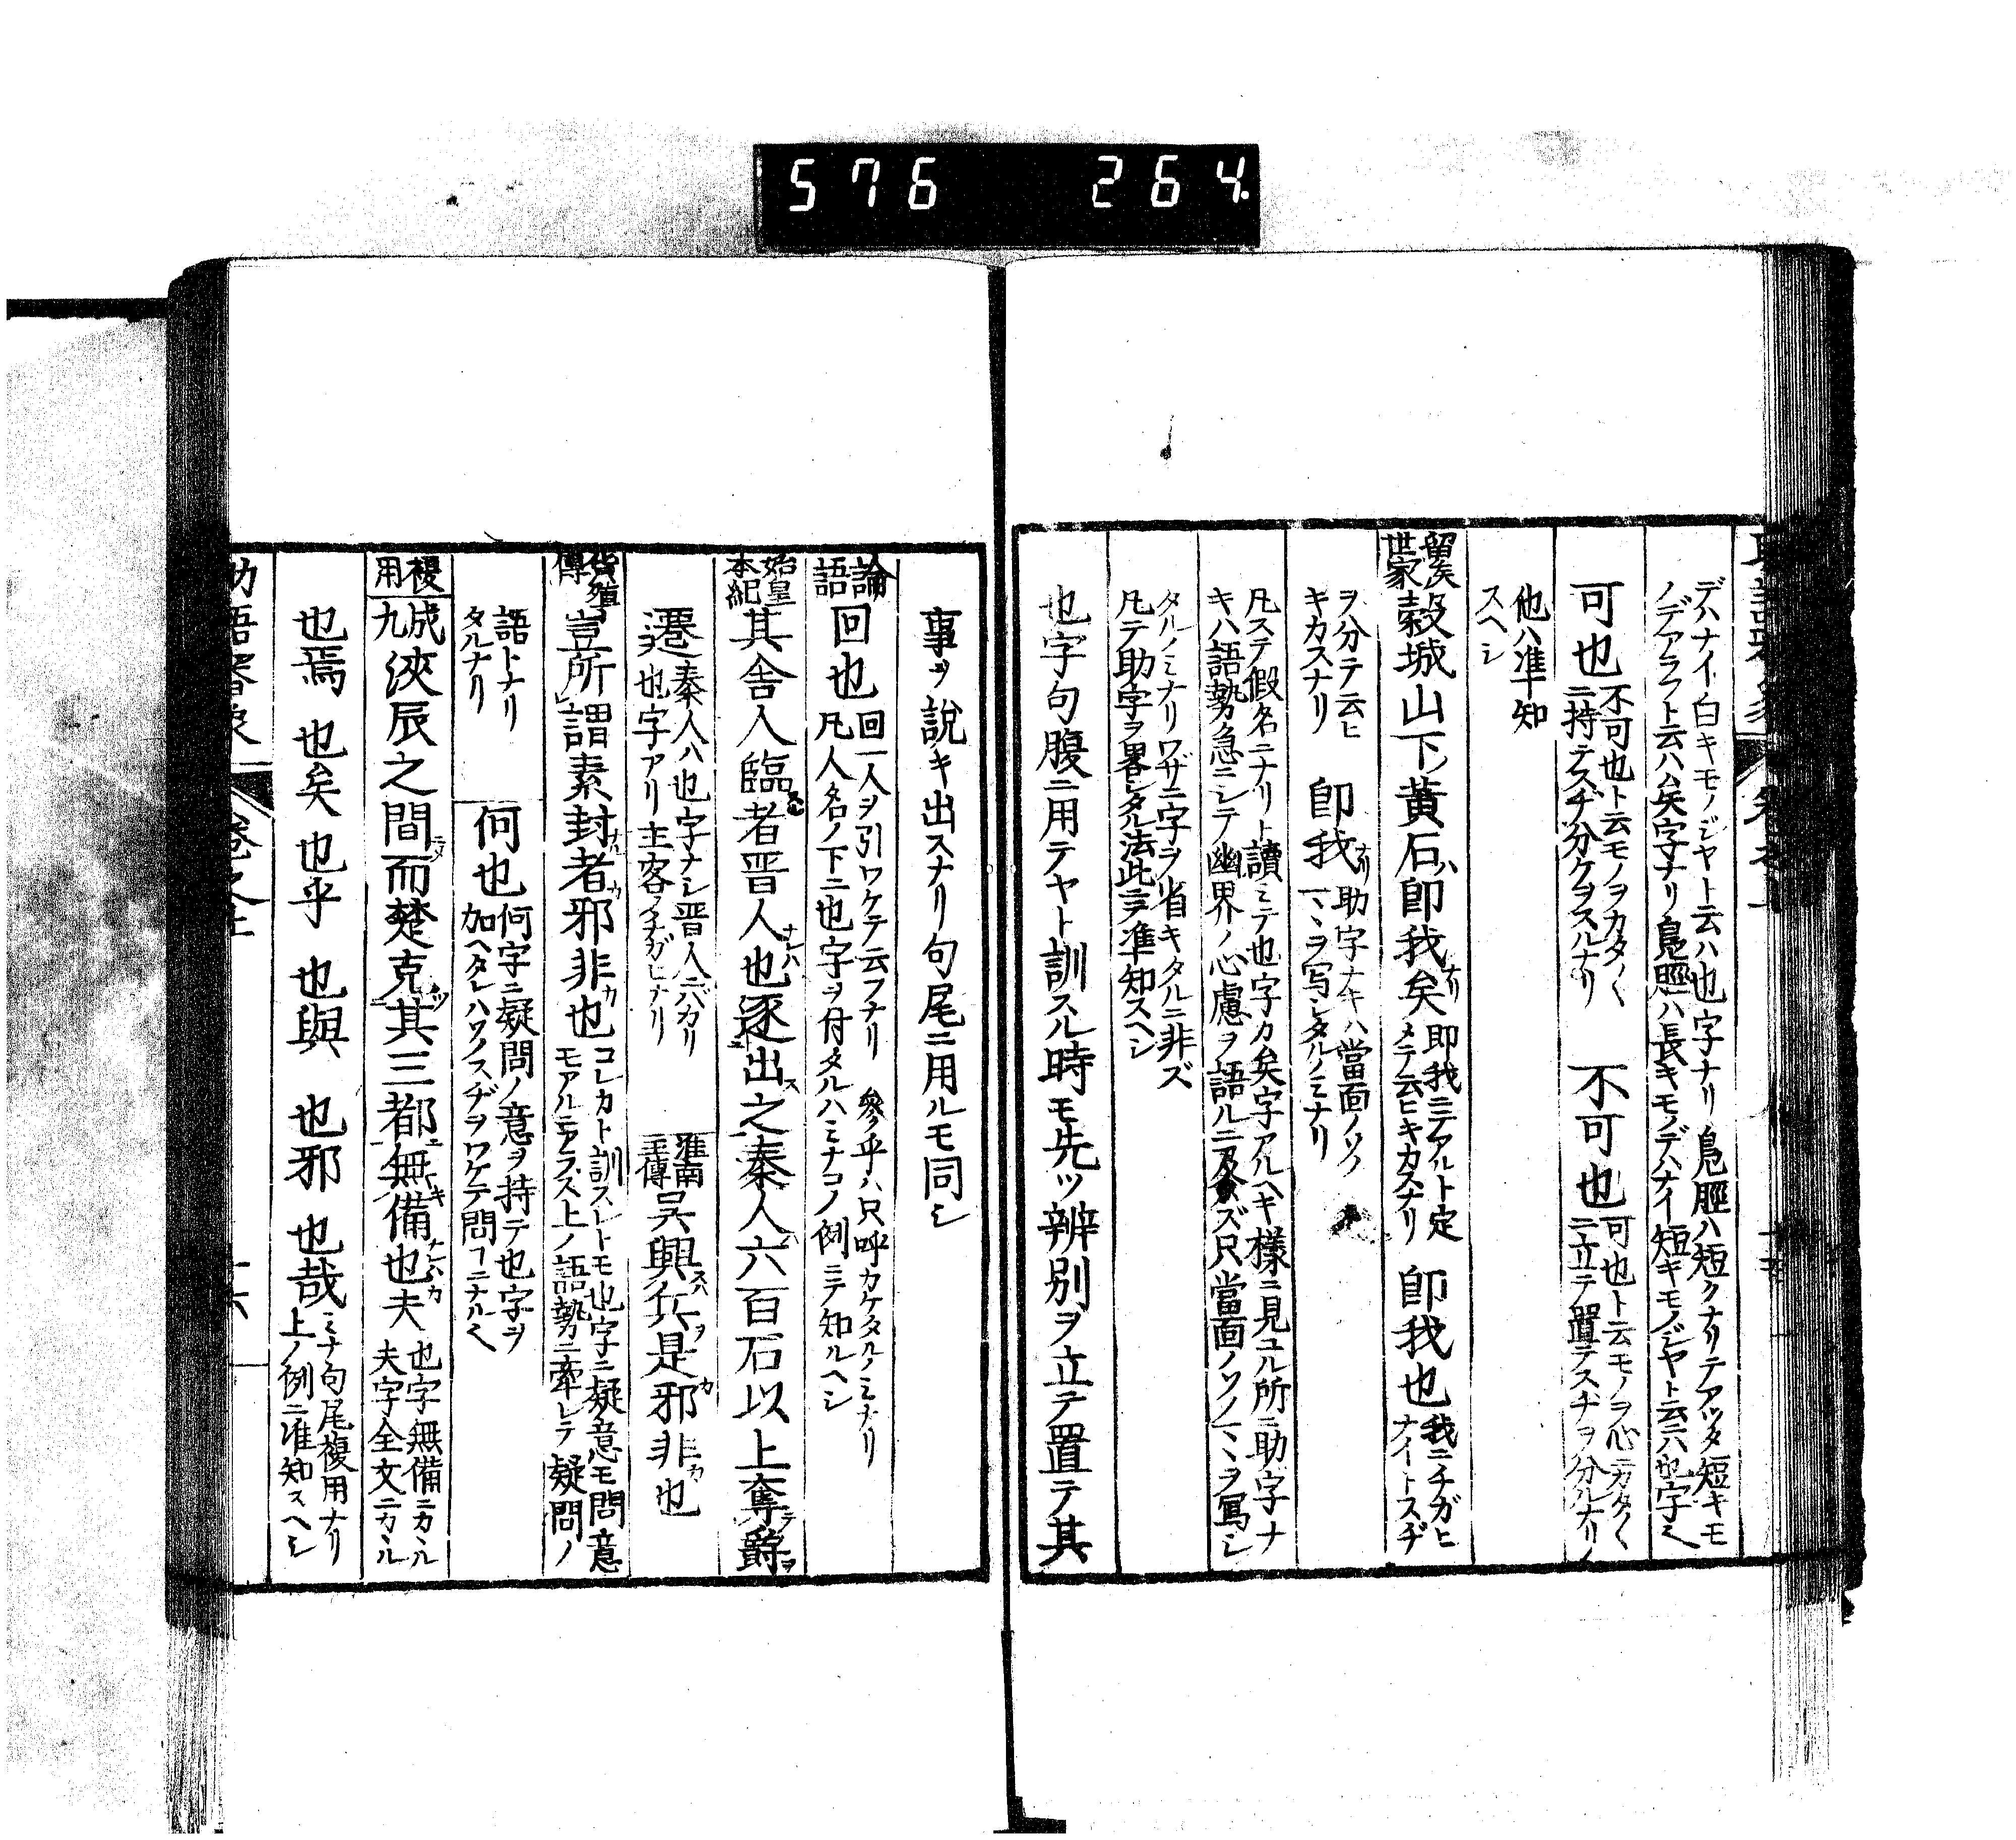 576 264.
デハナイ白キモノジヤト云ハ也字ナリ鳬脛ハ短クナリテアツタ短キモ
ノデアラフト云ハム矣字ナリ鳬脛ハ長キモノデハナイ短キモノジヤト云ハ也字ミ
可也
不可也ト云モノヲカタ〱
ニ持テスヂ分ケヲスルナリ
不可也
可也ト云モノヲ心ニカタ〱
ニ立テ置テスヂヲ分ルナリ
他ハ准知
スヘシ
留矦
世家
穀城山下黄石即我矣
即我ニテアルト定
メテ云ヒキカスナリ
即我也
我ニチガヒ
ナイトスヂ
ヲ分テ云ヒ
キカスナリ
即我
助字ナキハ當面ノソノ
マヽヲ写シタルノミナリ
凡ステ假名ニナリト讀ミテ也字カ矣字アルヘキ様ニ見ユル所ニ助字ナ
キハ語勢急ニシテ幽界ノ心慮ヲ語ルニ及ハズ只當面ノソノマヽヲ寫シ
タルノミナリワザニ字ヲ省キタルニ非ズ
凡テ助字ヲ畧シタル法此ニテ准知スヘシ
也字句腹ニ用テヤト訓スル時モ先ツ辨別ヲ立テ置テ其
事ヲ説キ出スナリ句尾ニ用ルモ同シ
論
語
回也
回一人ヲ引ワケテ云フナリ 參乎ハ只呼カケタルノミナリ
凡人名ノ下ニ也字ヲ付タルハミナコノ例ニテ知ルヘシ
始皇
本紀
其舎人臨者晋人也逐出之秦人六百石以上奪爵
遷
秦人ハ也字ナシ晋人ニバカリ
也字アリ主客ノチガヒナリ
淮南
王傳
呉興兵是邪非也
貨殖
傳
豈所謂素封者邪非也
コレカト訓スレトモ也字ニ疑意モ問意
モアルニアラス上ノ語勢ニ牽レテ疑問ノ
語トナリ
タルナリ
何也
何字ニ疑問ノ意ヲ持テ也字ヲ
加ヘタレハソノスヂヲワケテ問フニナル
複
用
成
九
浹辰之間而楚克其三都無備也夫
也字無備ニカヽル
夫字全文ニカヽル
也焉 也矣 也乎 也與 也邪 也哉
ミナ句尾複用ナリ
上ノ例ニ准知スヘシ